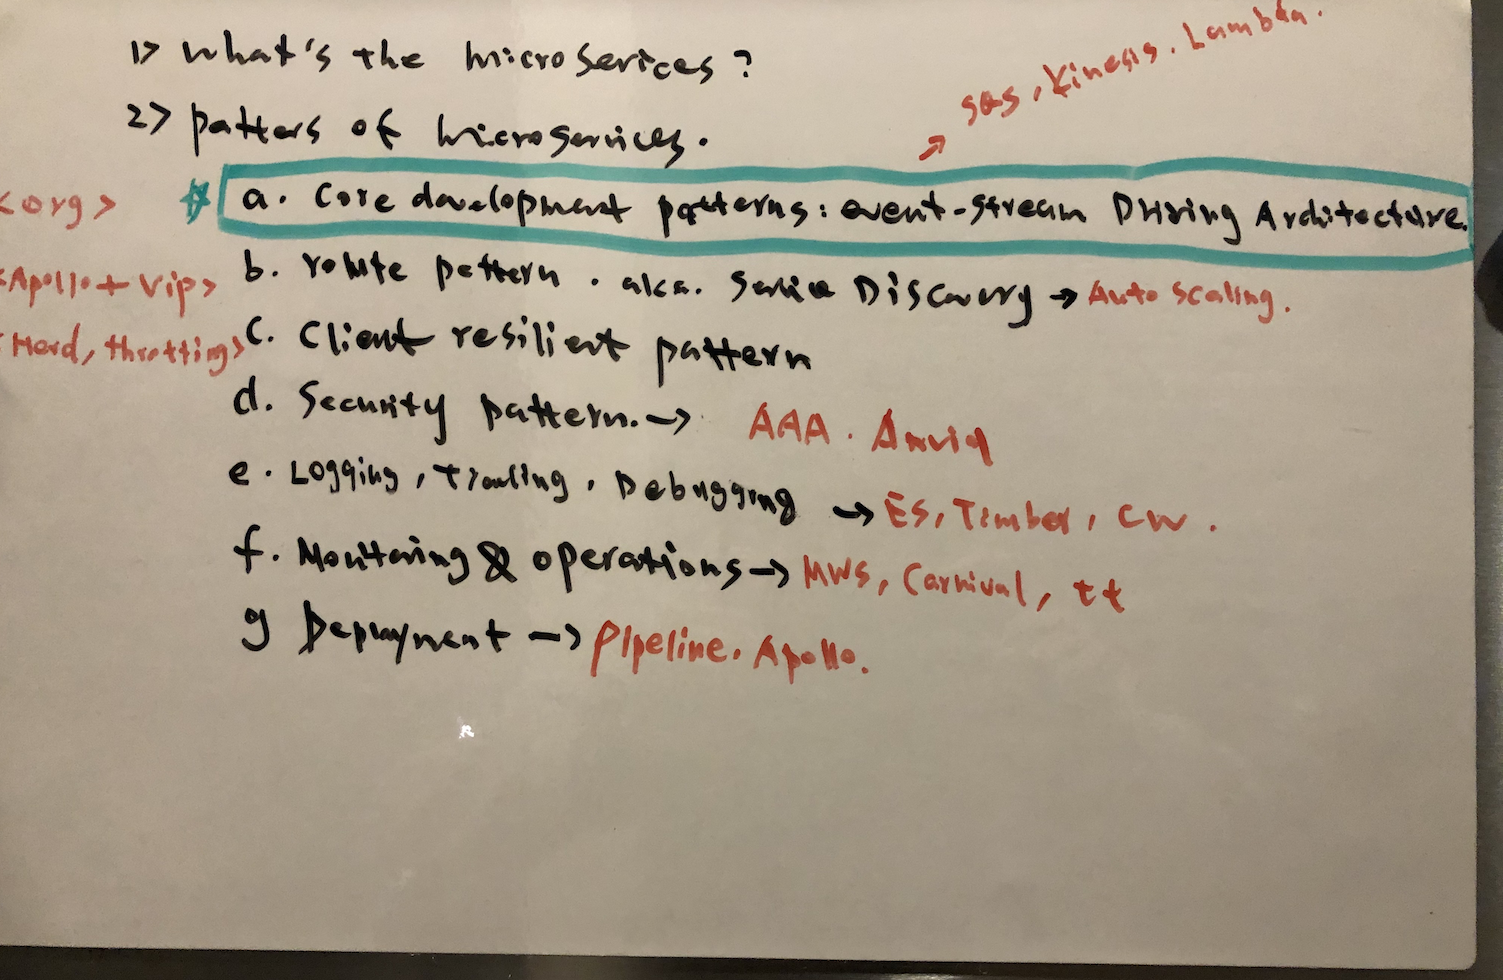 1> What's the microserices?
2> patters of microservices.
SQS, Kinesis. Lambda.
<org> a. Core development patterns: event-stream Driving Architecture.
<Apollo + Vip> b. route pattern. aka. Service Discovery → Auto Scaling.
<Herd, throtting> C. Client resilient pattern
d. Security pattern. → AAA. Anvil
e. Logging, , Debugging → ES, Timber, CW.
f. Monitoring & operations → MWS, Carnival, tt
g Deployment → Pipeline. Apollo.